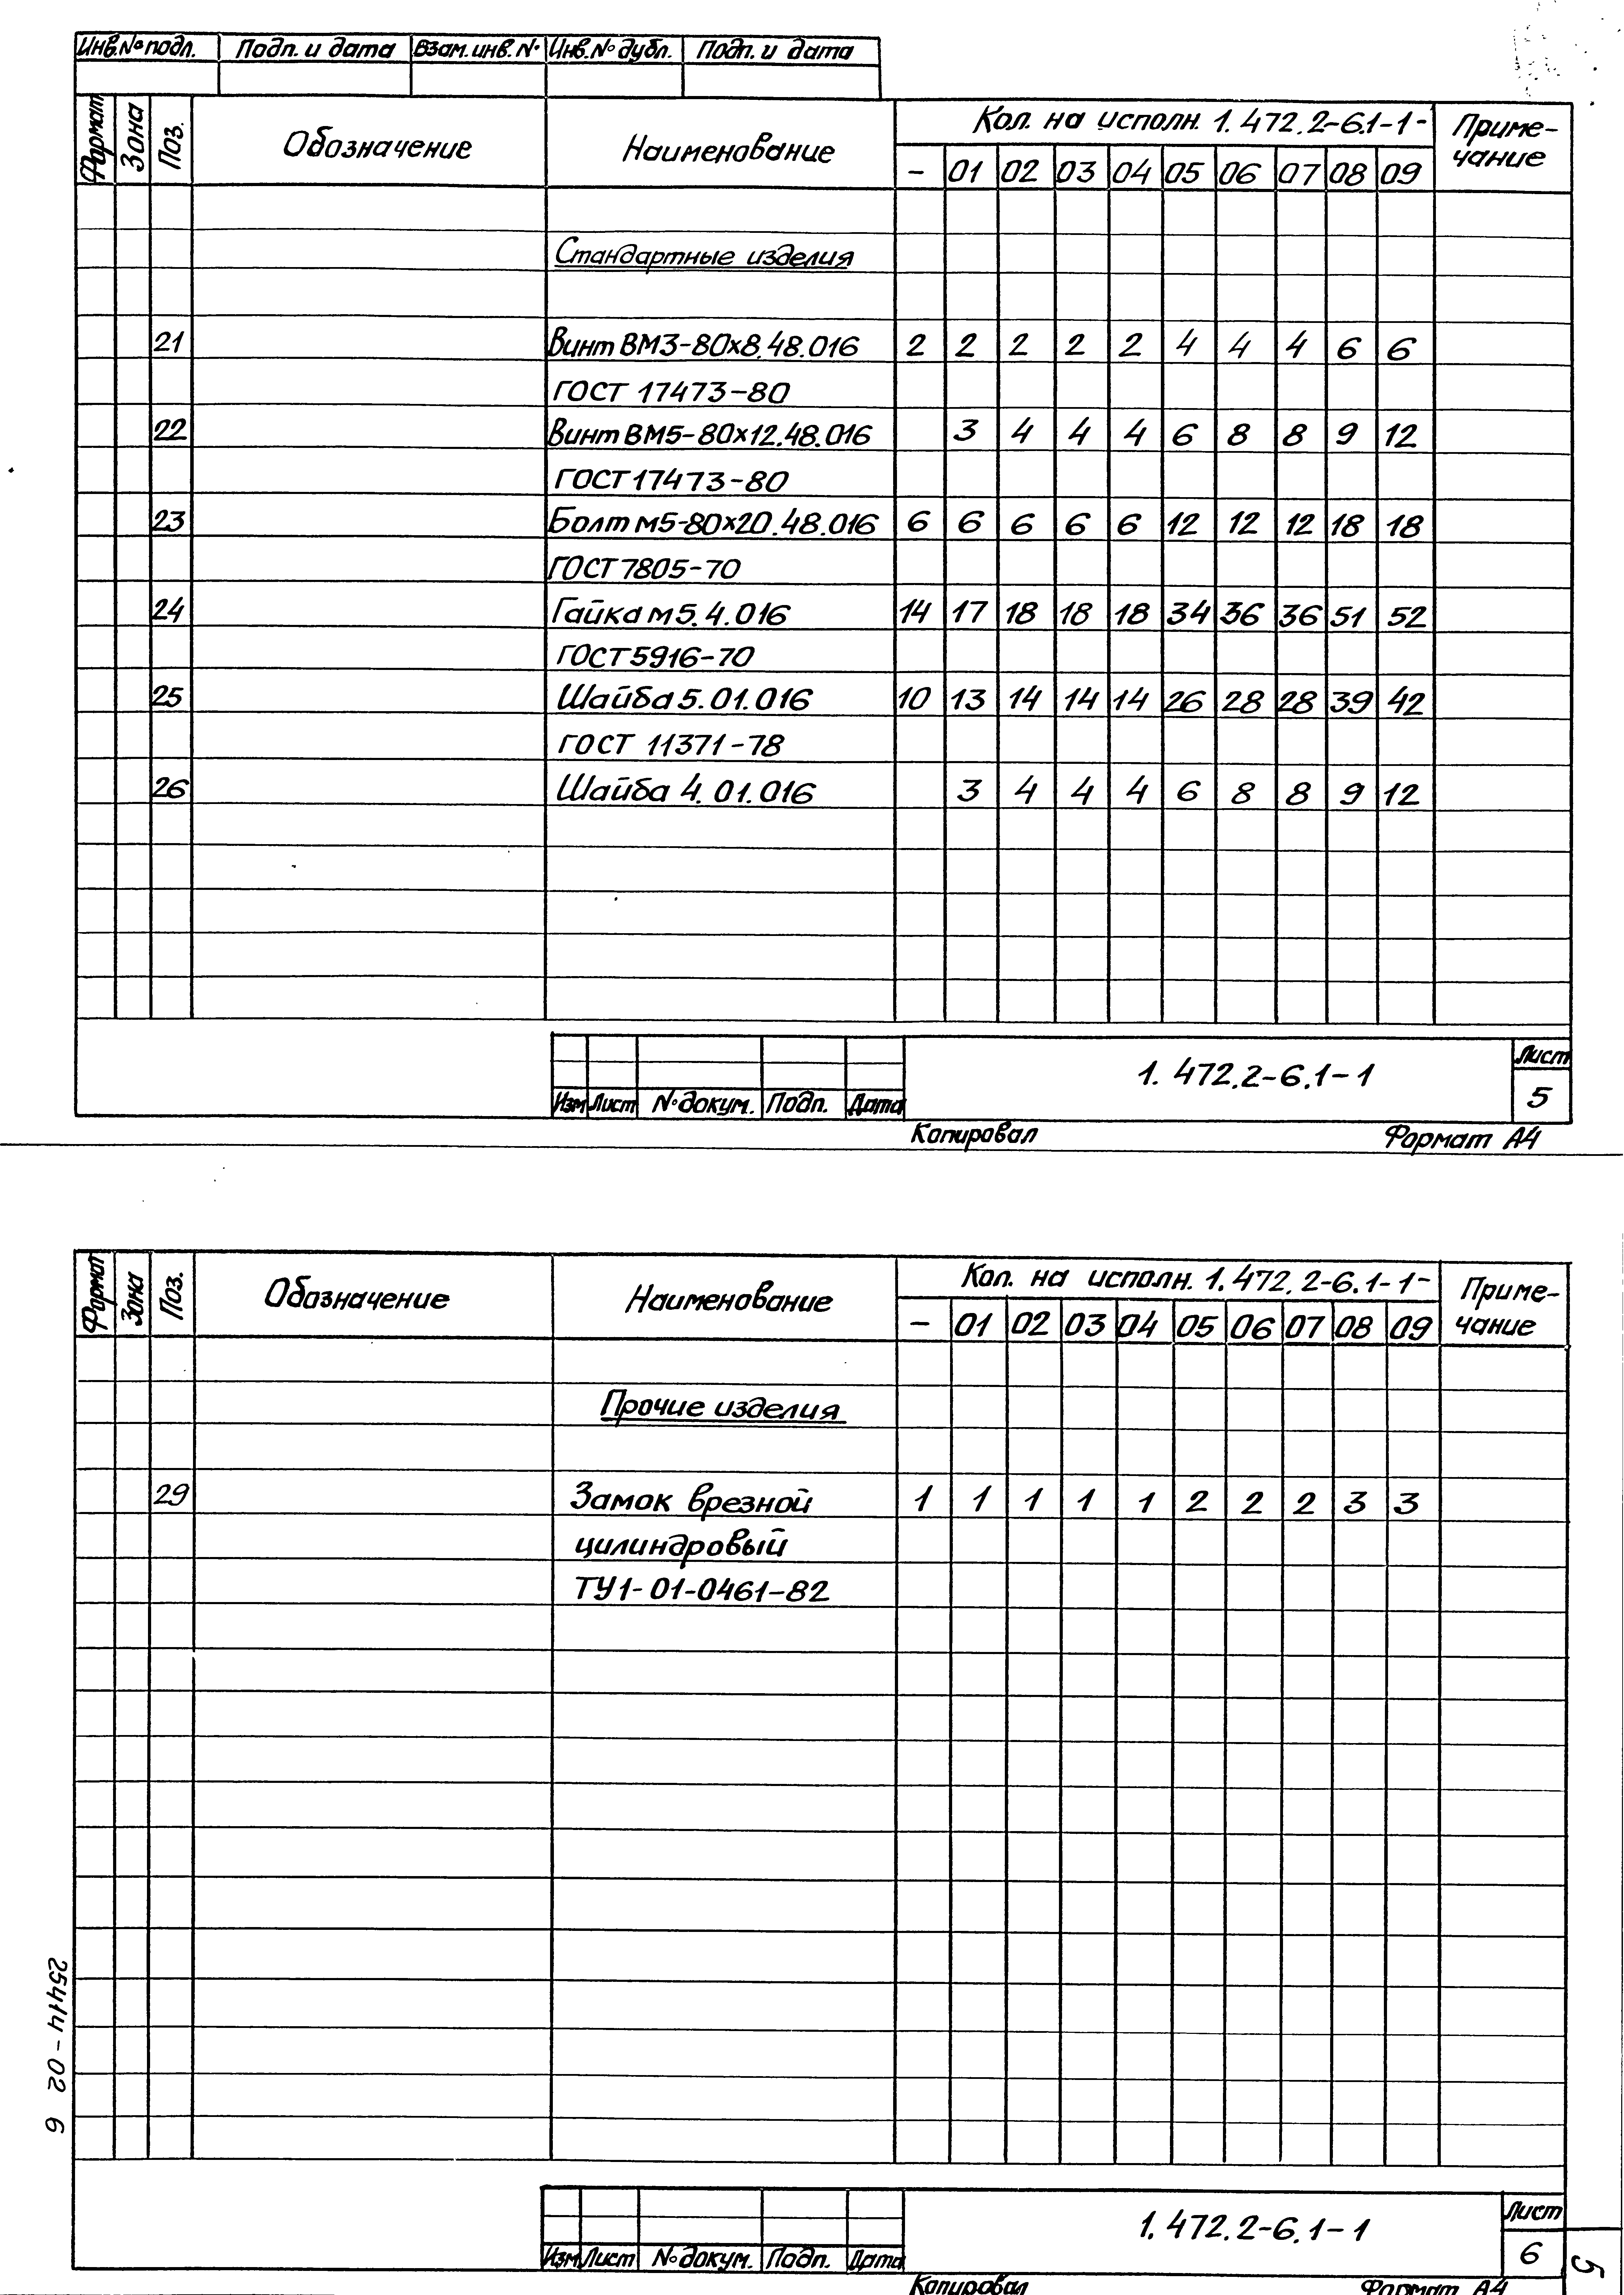 Инв.№ подл. Подп. и дата Взам. инв. № Инв. № дубл. Подп. и дата
Формат Зона Поз. Обозначение Наименование Кол. на исполн. 1.472.2-6.1-1- Приме-
чание
- 01 02 03 04 05 06 07 08 09
Стандартные изделия
21 Винт ВМ3-80х8.48.016 2 2 2 2 2 4 4 4 6 6
ГОСТ 17473-80
22 Винт ВМ5-80х12.48.016 3 4 4 4 6 8 8 9 12
ГОСТ 17473-80
23 Болт м5-80х20.48.016 6 6 6 6 6 12 12 12 18 18
ГОСТ 7805-70
24 Гайка м5.4.016 14 17 18 18 18 34 36 36 51 52
ГОСТ 5916-70
25 Шайба 5.01.016 10 13 14 14 14 26 28 28 39 42
ГОСТ 11371-78
26 Шайба 4.01.016 3 4 4 4 6 8 8 9 12
1.472.2-6.1-1 Лист
5
Изм Лист № докум. Подп. Дата
Копировал Формат А4
Формат Зона Поз. Обозначение Наименование Кол. на исполн. 1.472.2-6.1-1- Приме-
чание
- 01 02 03 04 05 06 07 08 09
Прочие изделия
29 Замок врезной 1 1 1 1 1 2 2 2 3 3
цилиндровый
ТУ1-01-0461-82
25414-02 6
1.472.2-6.1-1 Лист
6
Изм Лист № докум. Подп. Дата
5
Копировал Формат А4